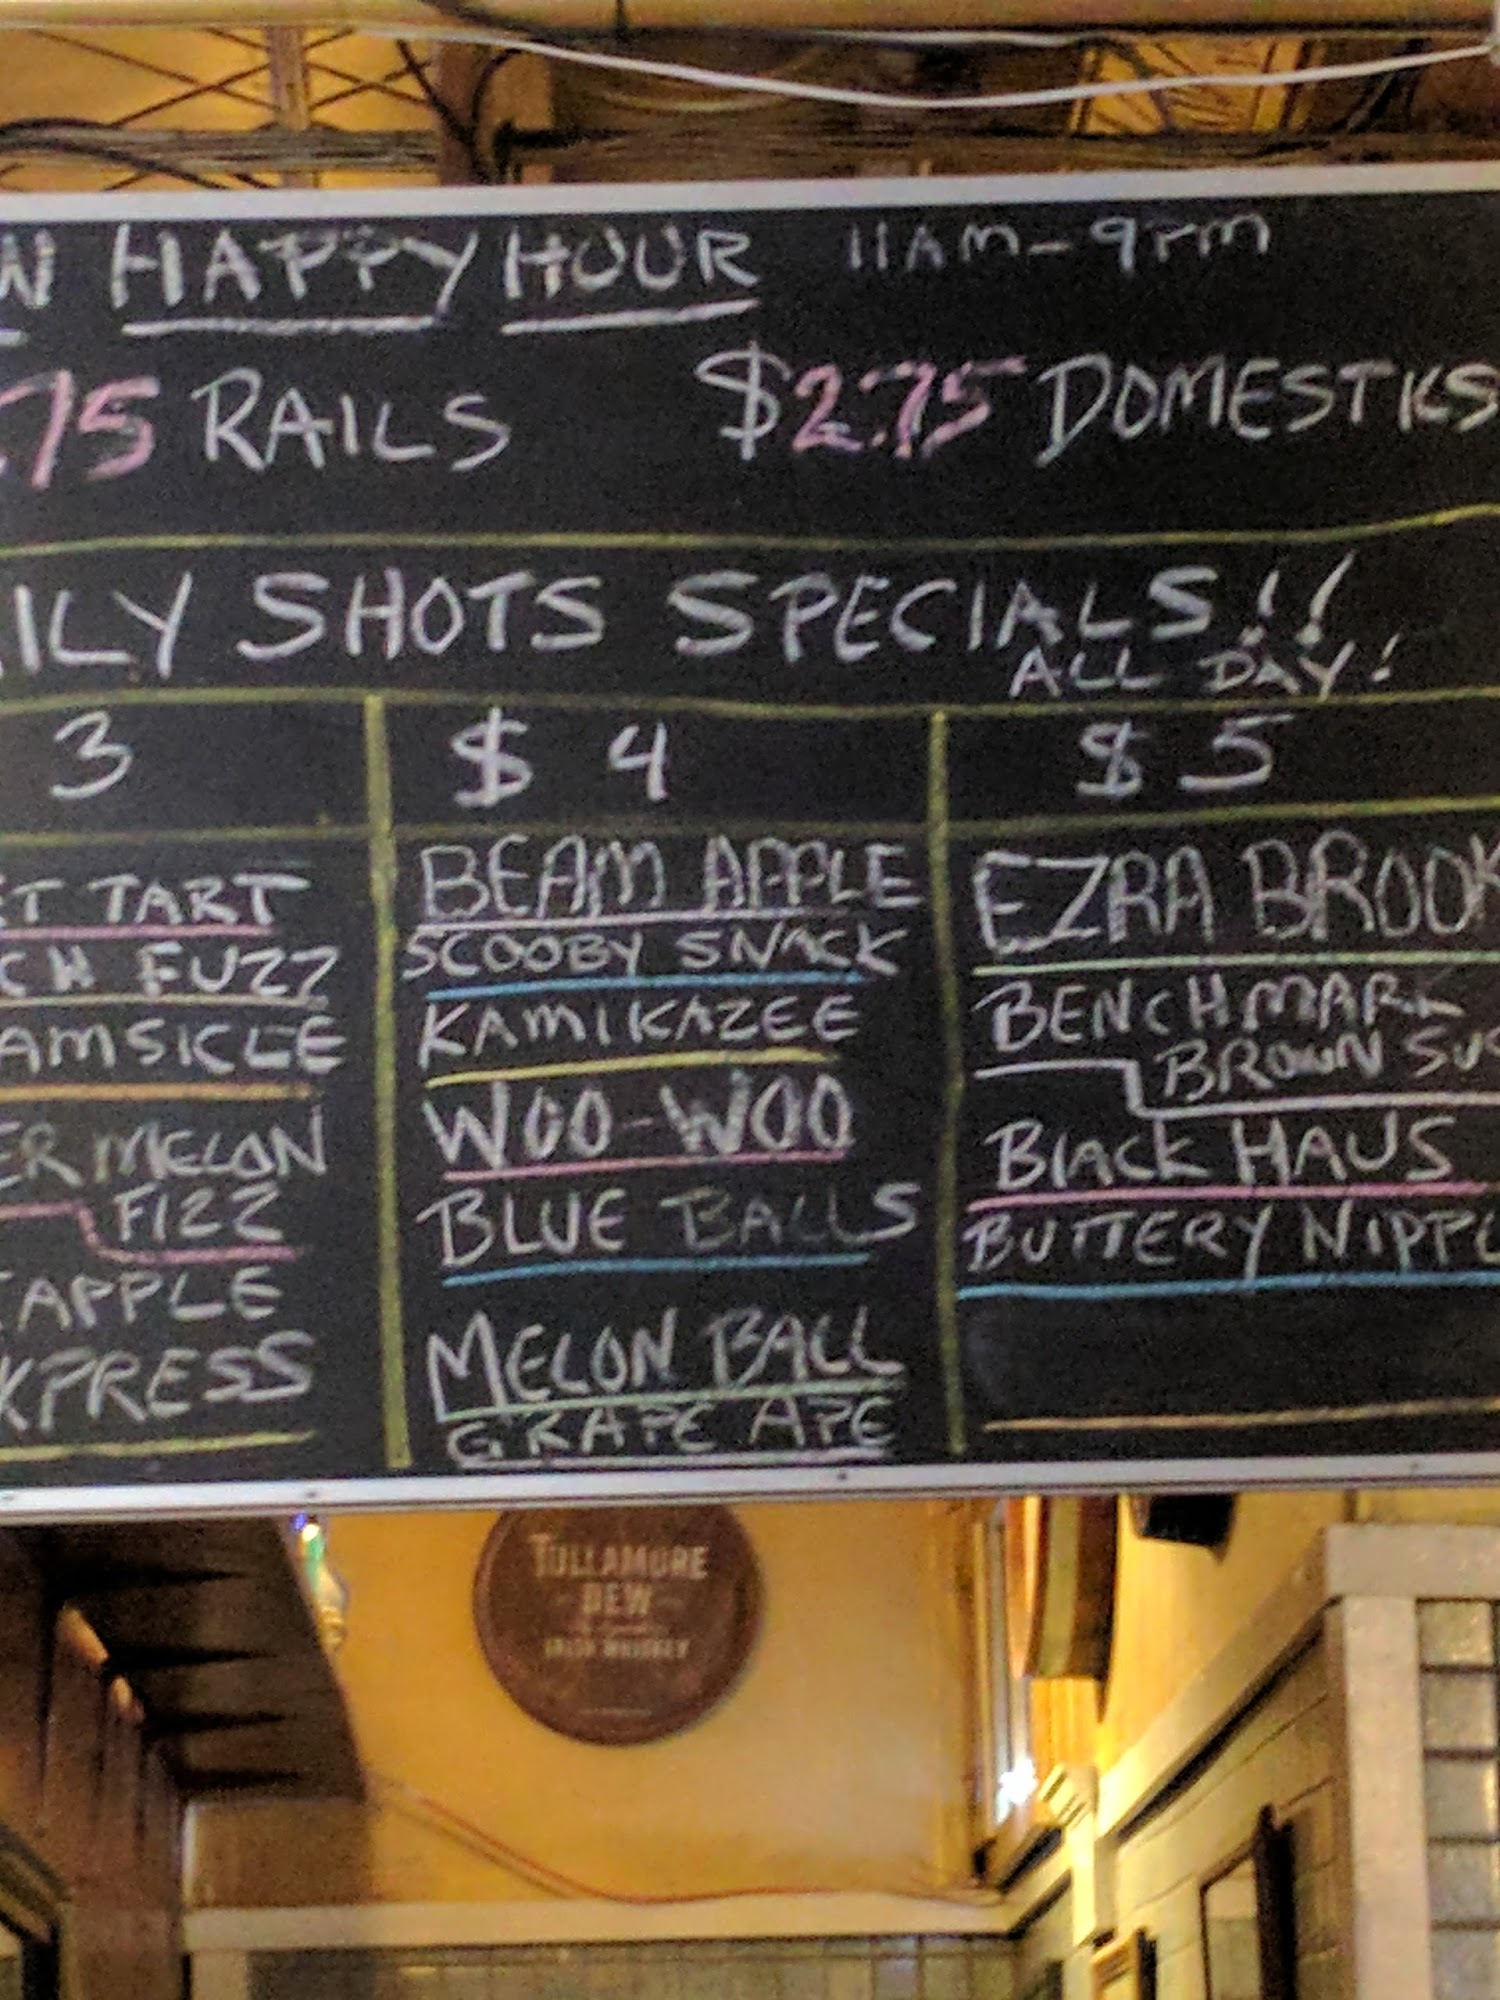 N HAPPY HOUR 11AM-9PM
.75 RAILS $2.75 DOMESTKS
ILY SHOTS SPECIALS!!
ALL DAY!
3 $ 4 $ 5
ET TART
CH FUZZ
AMSICLE
ER MELON
FIZZ
APPLE
XPRESS
BEAM APPLE
SCOOBY SNACK
KAMIKAZEE
WOO-WOO
BLUE BALLS
MELON BALL
GRAPE APE
EZRA BROOK
BENCHMARK
BROWN SUG
BLACK HAUS
BUTTERY NIPPL
TULLAMORE
DEW
IRISH WHISKEY